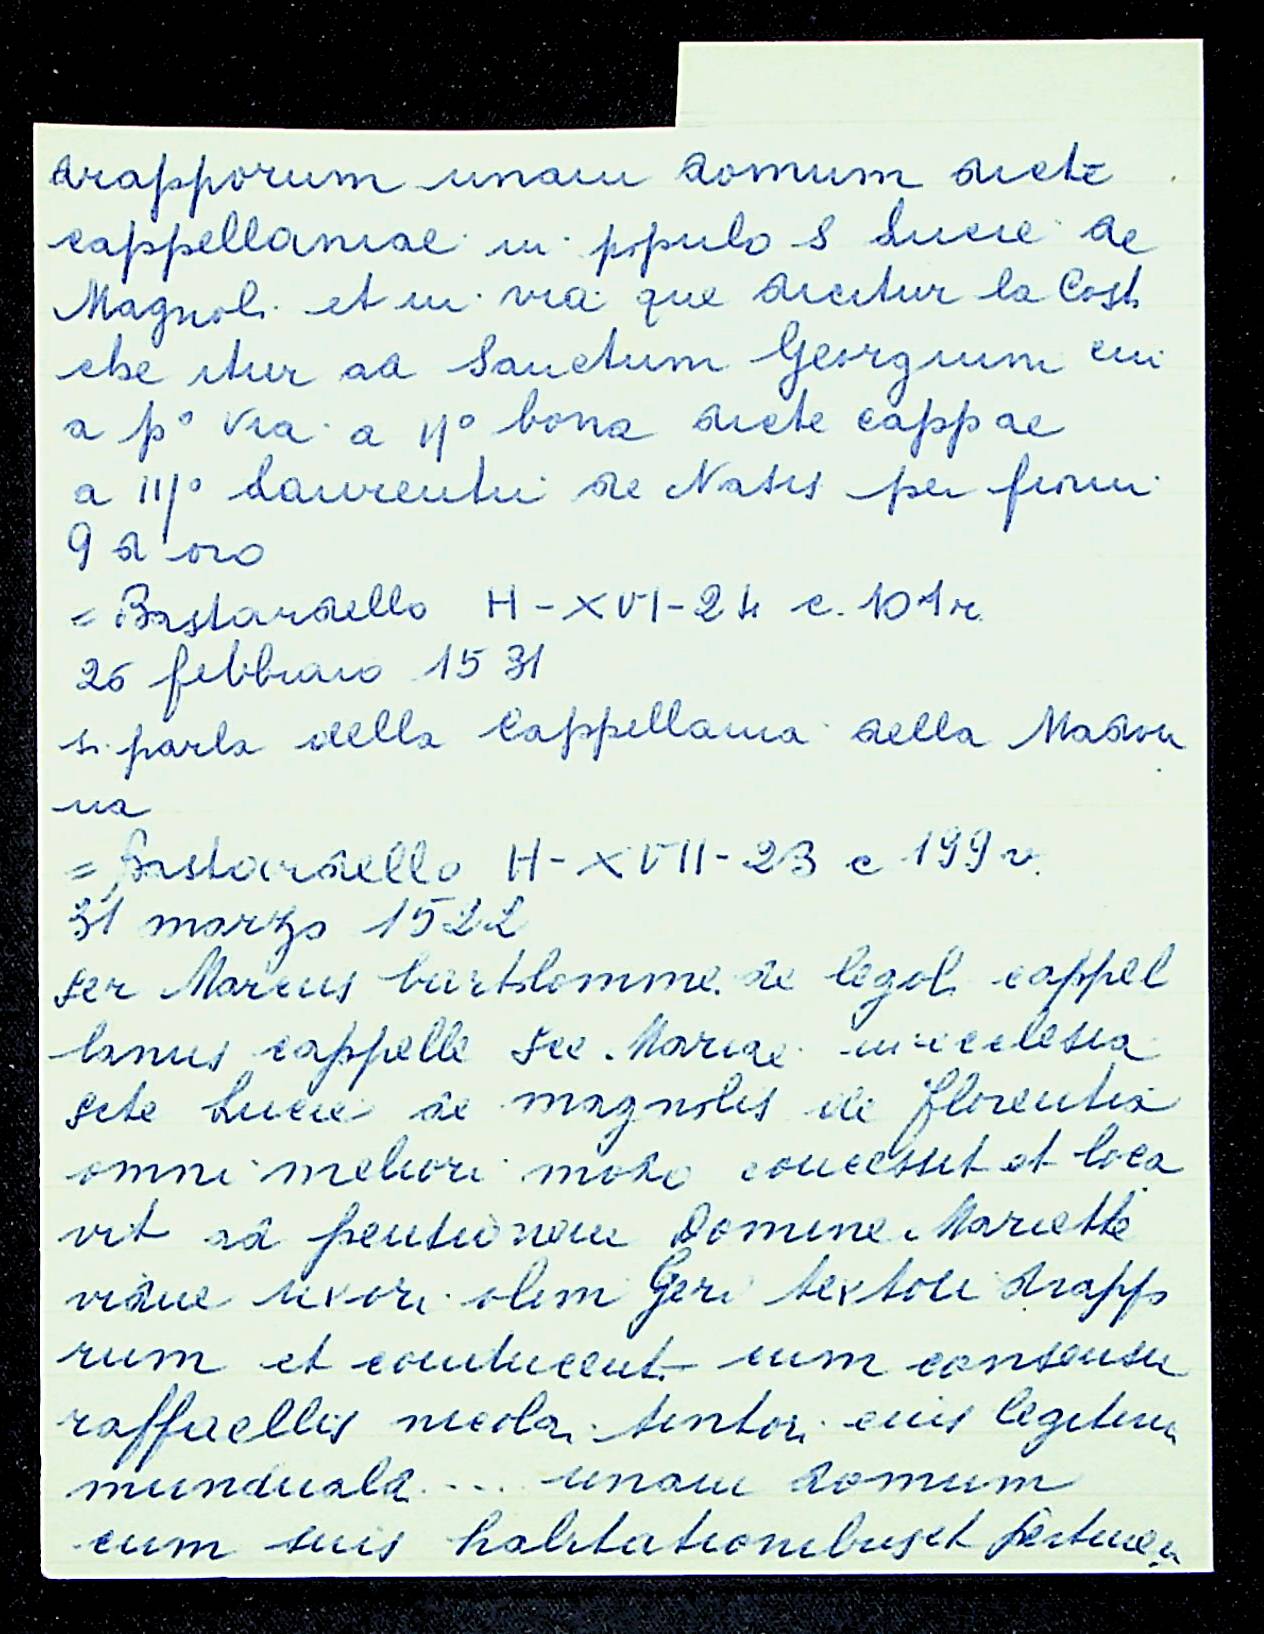 drapporum unam domum dicte
cappellaniae in populo S Lucie de
Magnoli et in via que dicitur la Cost.
che itur ad Sanctum Georgium cui
a p° via a II° bona dicte cappae
a III° Laurentii de Nasis per fiorni
9 d'oro
= Bastardello H-XVI-24 c. 101r.
26 febbraio 1531
si parla della Cappellania della Madon
na
= Bastardello H-XVII-23 c 199v.
31 marzo 1522
ser Marcus bartolommei de legol. cappel
lanus cappelle see Mariae in ecclesia
scte Lucie de magnolis di florentia
omni meliori modo concessit et loca
vit ad pentionem Domine Mariette
vidue uxori olim Geri textori drappo
rum et conducent. cum consensu
raffaellis nicolai tintori eius legitimi
mundualdi .... unam domum
cum suis habitationibus et pertinen